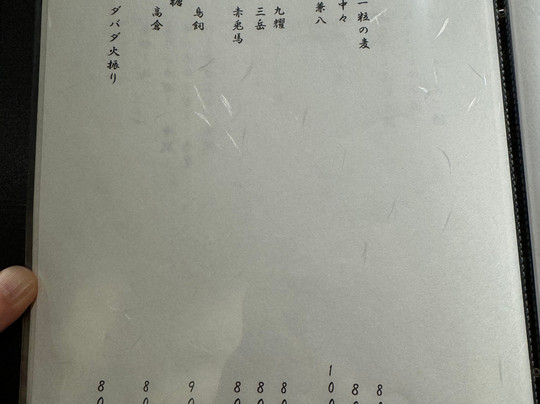 一粒の麦
中々
兼八
九耀
三岳
赤兎馬
鳥飼
糖
高倉
ダバダ火振り
8
8
10
8
8
8
9
8
8